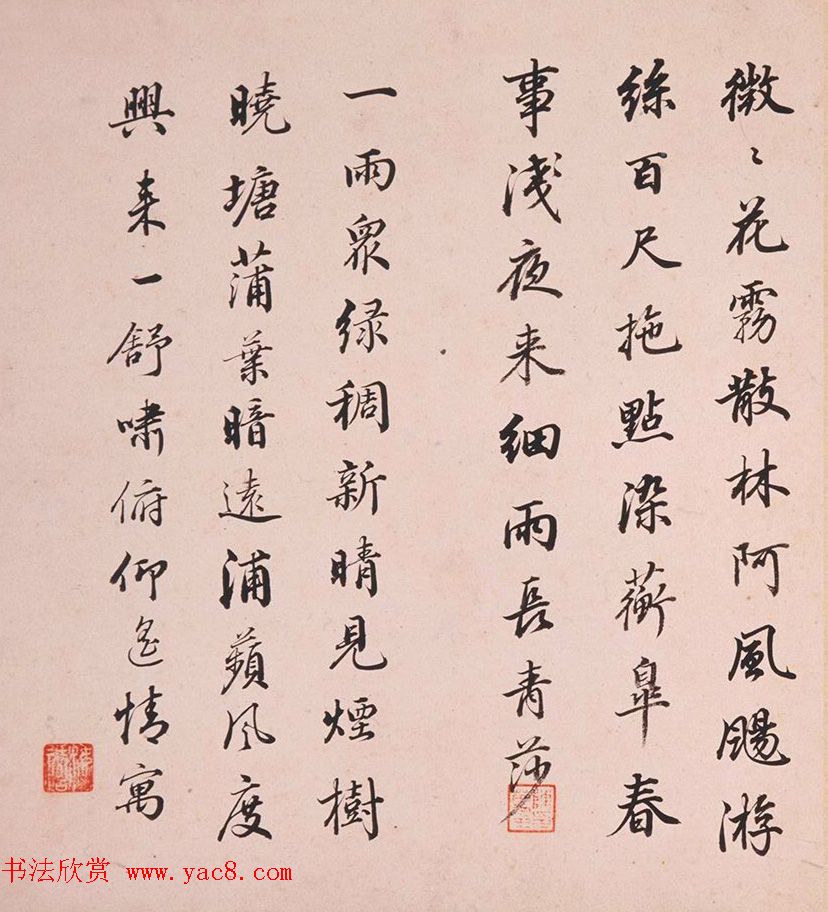 微〻花霧散林阿風颺游
絲百尺拖點染蘅皐春
事淺夜来细雨長青莎
一雨衆緑稠新晴見煙樹
曉塘蒲葉暗遠浦蘋风度
興来一舒嘯俯仰遙情寓
书法欣赏 www.yac8.com